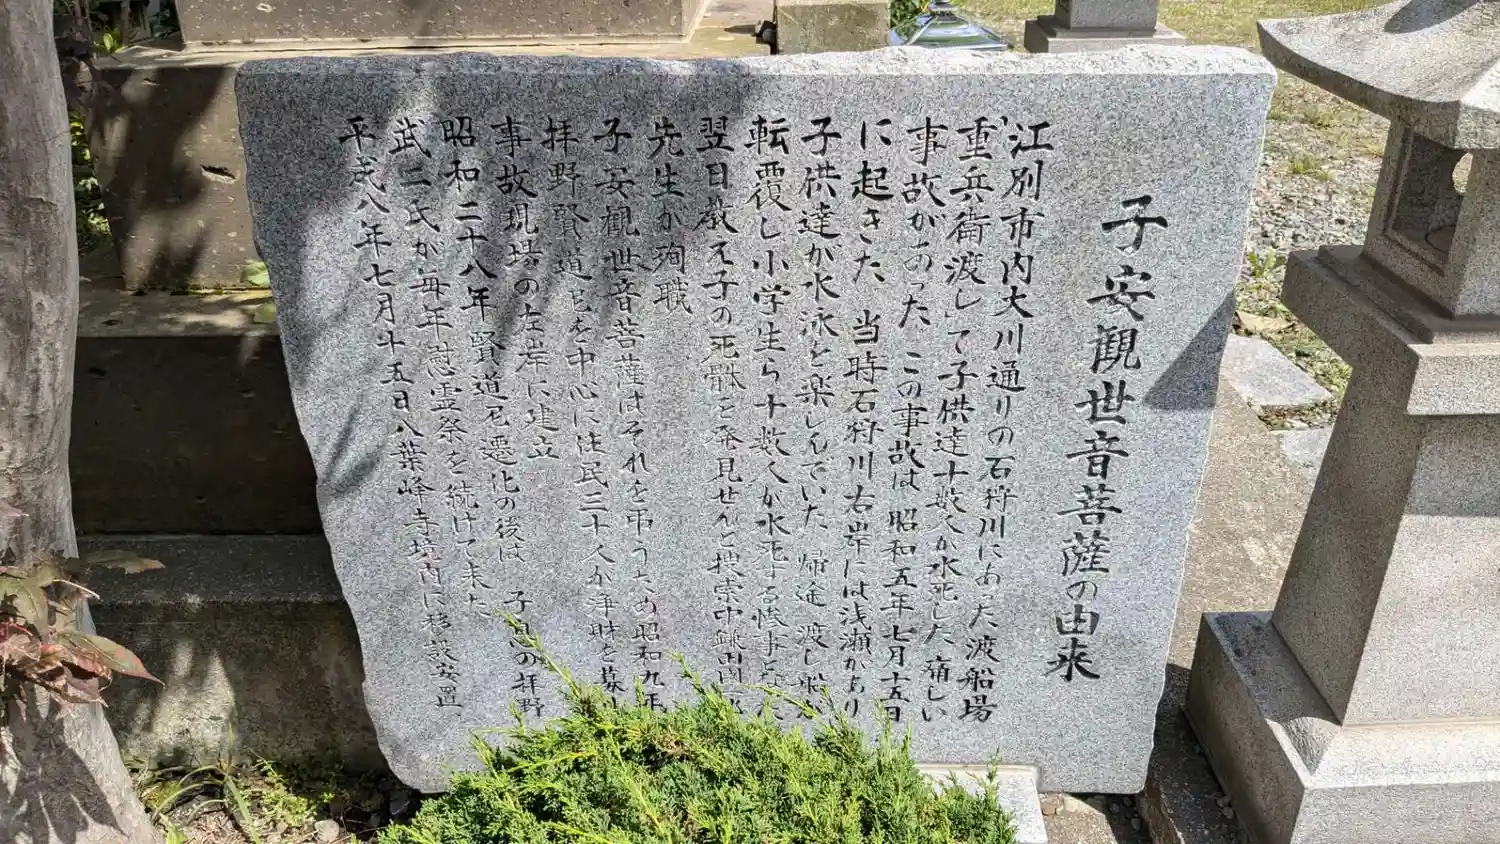 子安観世音菩薩の由来
江別市内大川通りの石狩川にあった渡船場
「重兵衛渡し」で子供達十数人が水死した痛しい
事故があった この事故は昭和五年七月十五日
に起きた 当時石狩川右岸には浅瀬があり
子供達が水泳を楽しんでいた 帰途渡し船が
転覆し小学生ら十数人が水死する惨事となった
翌日教え子の死骸を発見せんと捜索中鎌田
先生が殉職
子安観世音菩薩はそれを弔うため昭和九年
拝野賢道尼を中心に住民三十人が浄財を募り
事故現場の左岸に建立
昭和二十八年賢道尼遷化の後は 子息の拝野
武二氏が毎年慰霊祭を続けて来た
平成八年七月十五日八葉峰寺境内に移設安置